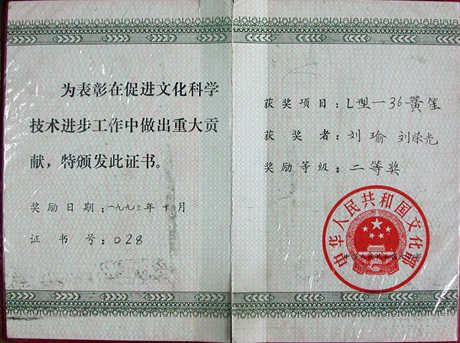 为表彰在促进文化科学
技术进步工作中做出重大贡
献，特颁发此证书。
奖励日期：一九九三年十月
证书号：028
获奖项目：L型一36簧笙
获奖者：刘瑜 刘荣光
奖励等级：二等奖
中华人民共和国文化部